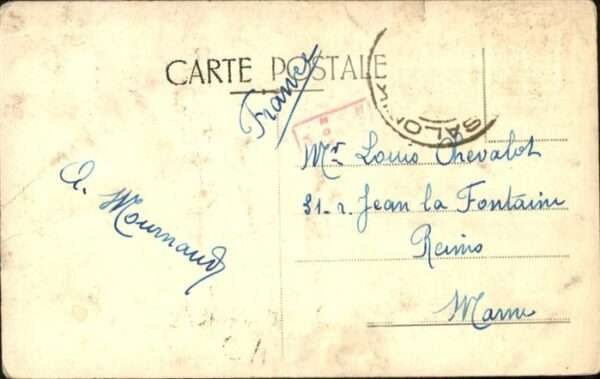 CARTE POSTALE
France
SALONI
Mr Louis Chevalot
31 - r. Jean la Fontaine
Reims
Marne
A. Mournaud